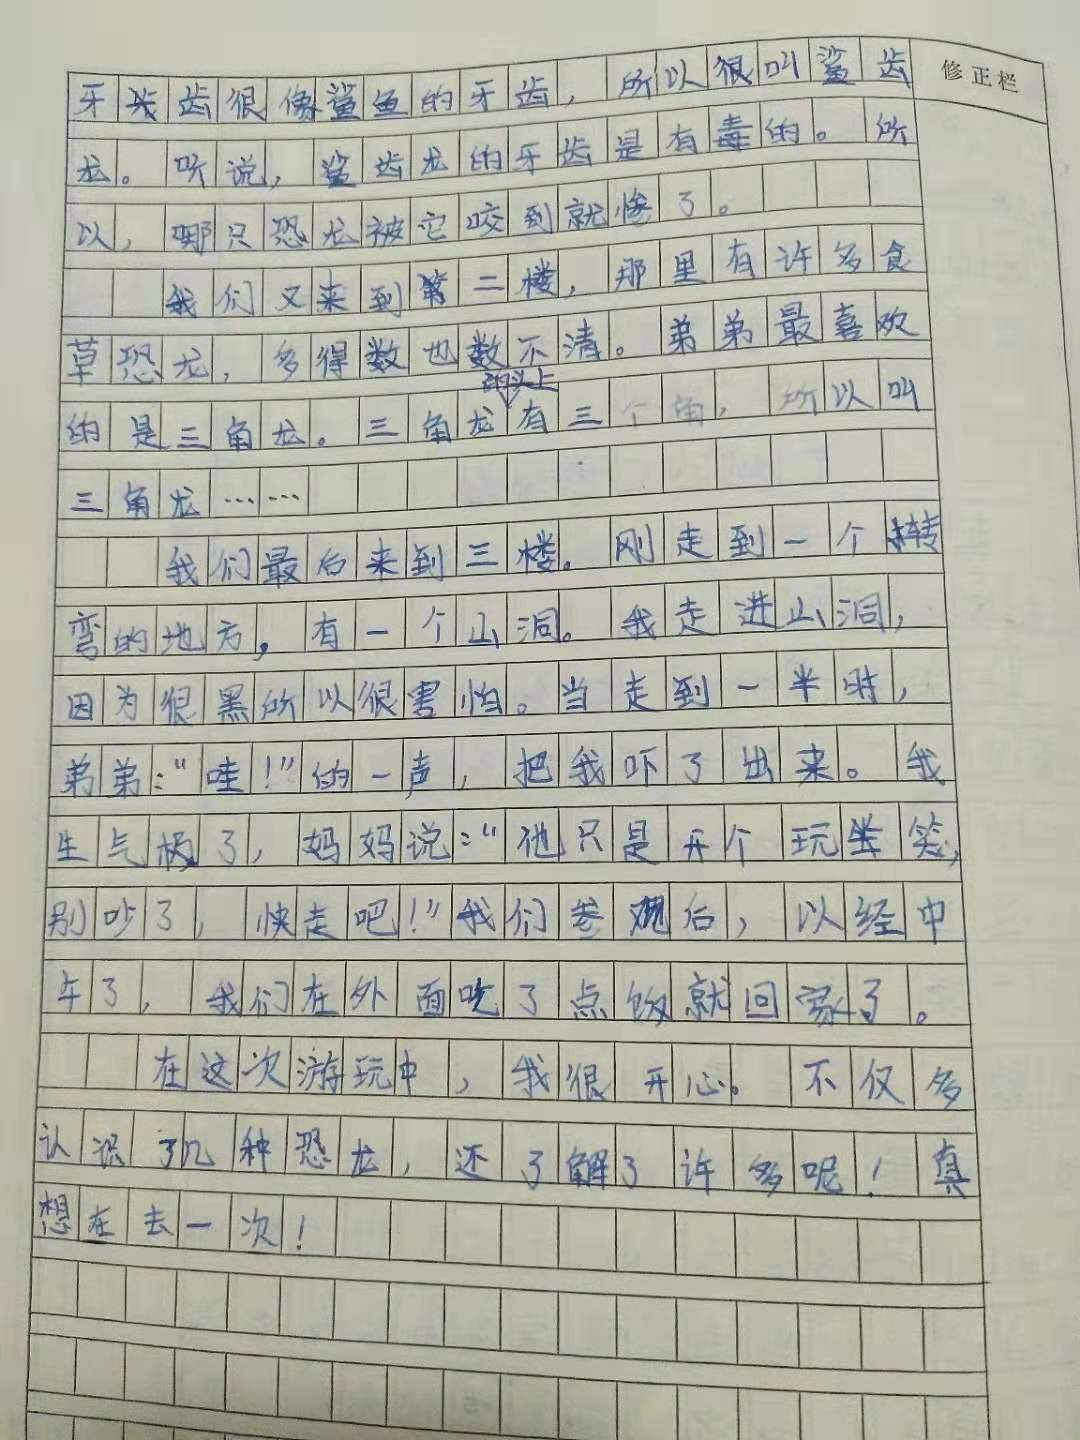 修正栏
牙齿很像鲨鱼的牙齿，所以很叫鲨齿
龙。听说，鲨齿龙的牙齿是有毒的。所
以，哪只恐龙被它咬到就惨了。
我们又来到第二楼，那里有许多食
草恐龙，多得数也数不清。弟弟最喜欢
的头上
的是三角龙。三角龙有三个角，所以叫
三角龙……
我们最后来到三楼。刚走到一个转
弯的地方，有一个山洞。我走进山洞，
因为很黑所以很害怕。当走到一半时，
弟弟："哇！"的一声，把我吓了出来。我
生气极了，妈妈说："他只是开个玩笑，
别吵了，快走吧！"我们参观后，以经中
午了，我们在外面吃了点饭就回家了。
在这次游玩中，我很开心。不仅多
认识了几种恐龙，还了解了许多呢！真
想在去一次！